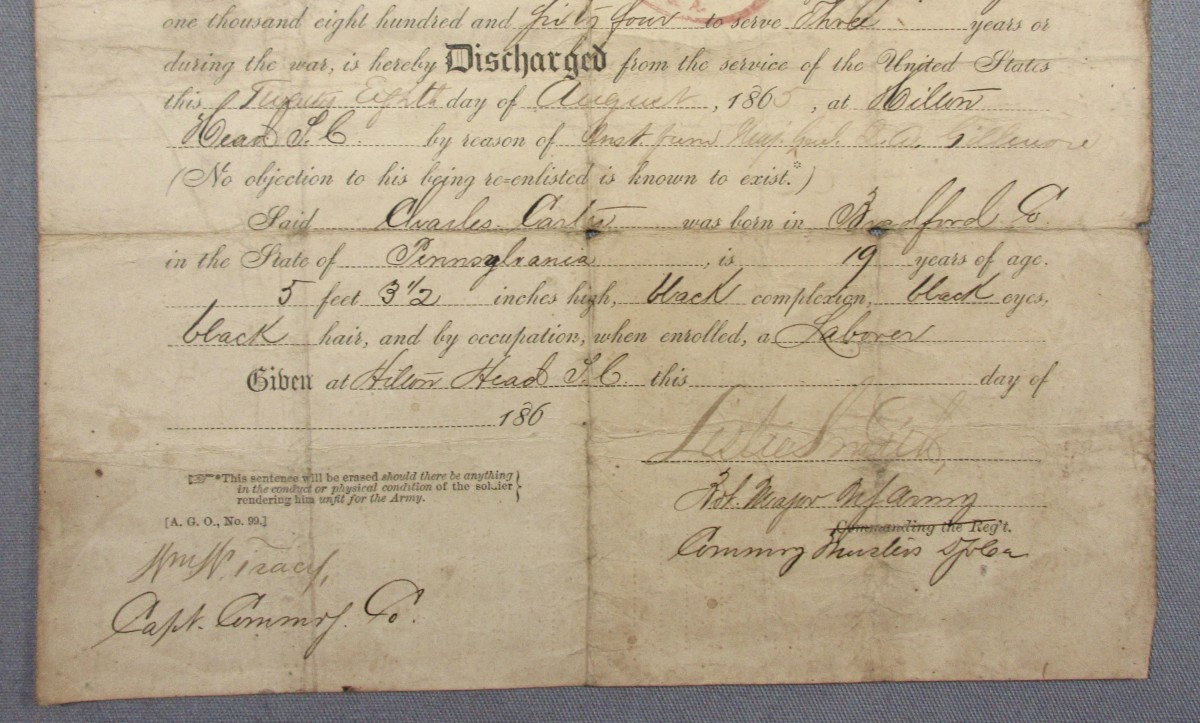 one thousand eight hundred and sixty four to serve Three years or
during the war, is hereby Discharged from the service of the United States
this Twenty Eighth day of August, 1865, at Hilton
Head S.C. by reason of Inst. from Maj. Genl. Q. A. Gillmore
(No objection to his being re=enlisted is known to exist.*)
Said Charles Carter was born in Bradford Co.
in the State of Pennsylvania, is 19 years of age.
5 feet 3 1/2 inches high, black complexion, black eyes,
black hair, and by occupation, when enrolled, a Laborer
Given at Hilton Head S.C. this day of
186
Leslie Smith,
☞*This sentence will be erased should there be anything
in the conduct or physical condition of the soldier
rendering him unfit for the Army.
[A. G. O., No. 99.]
Bvt. Major US Army
Commanding the Reg't.
Wm W. Tracy,
Capt. Commdg. Co.